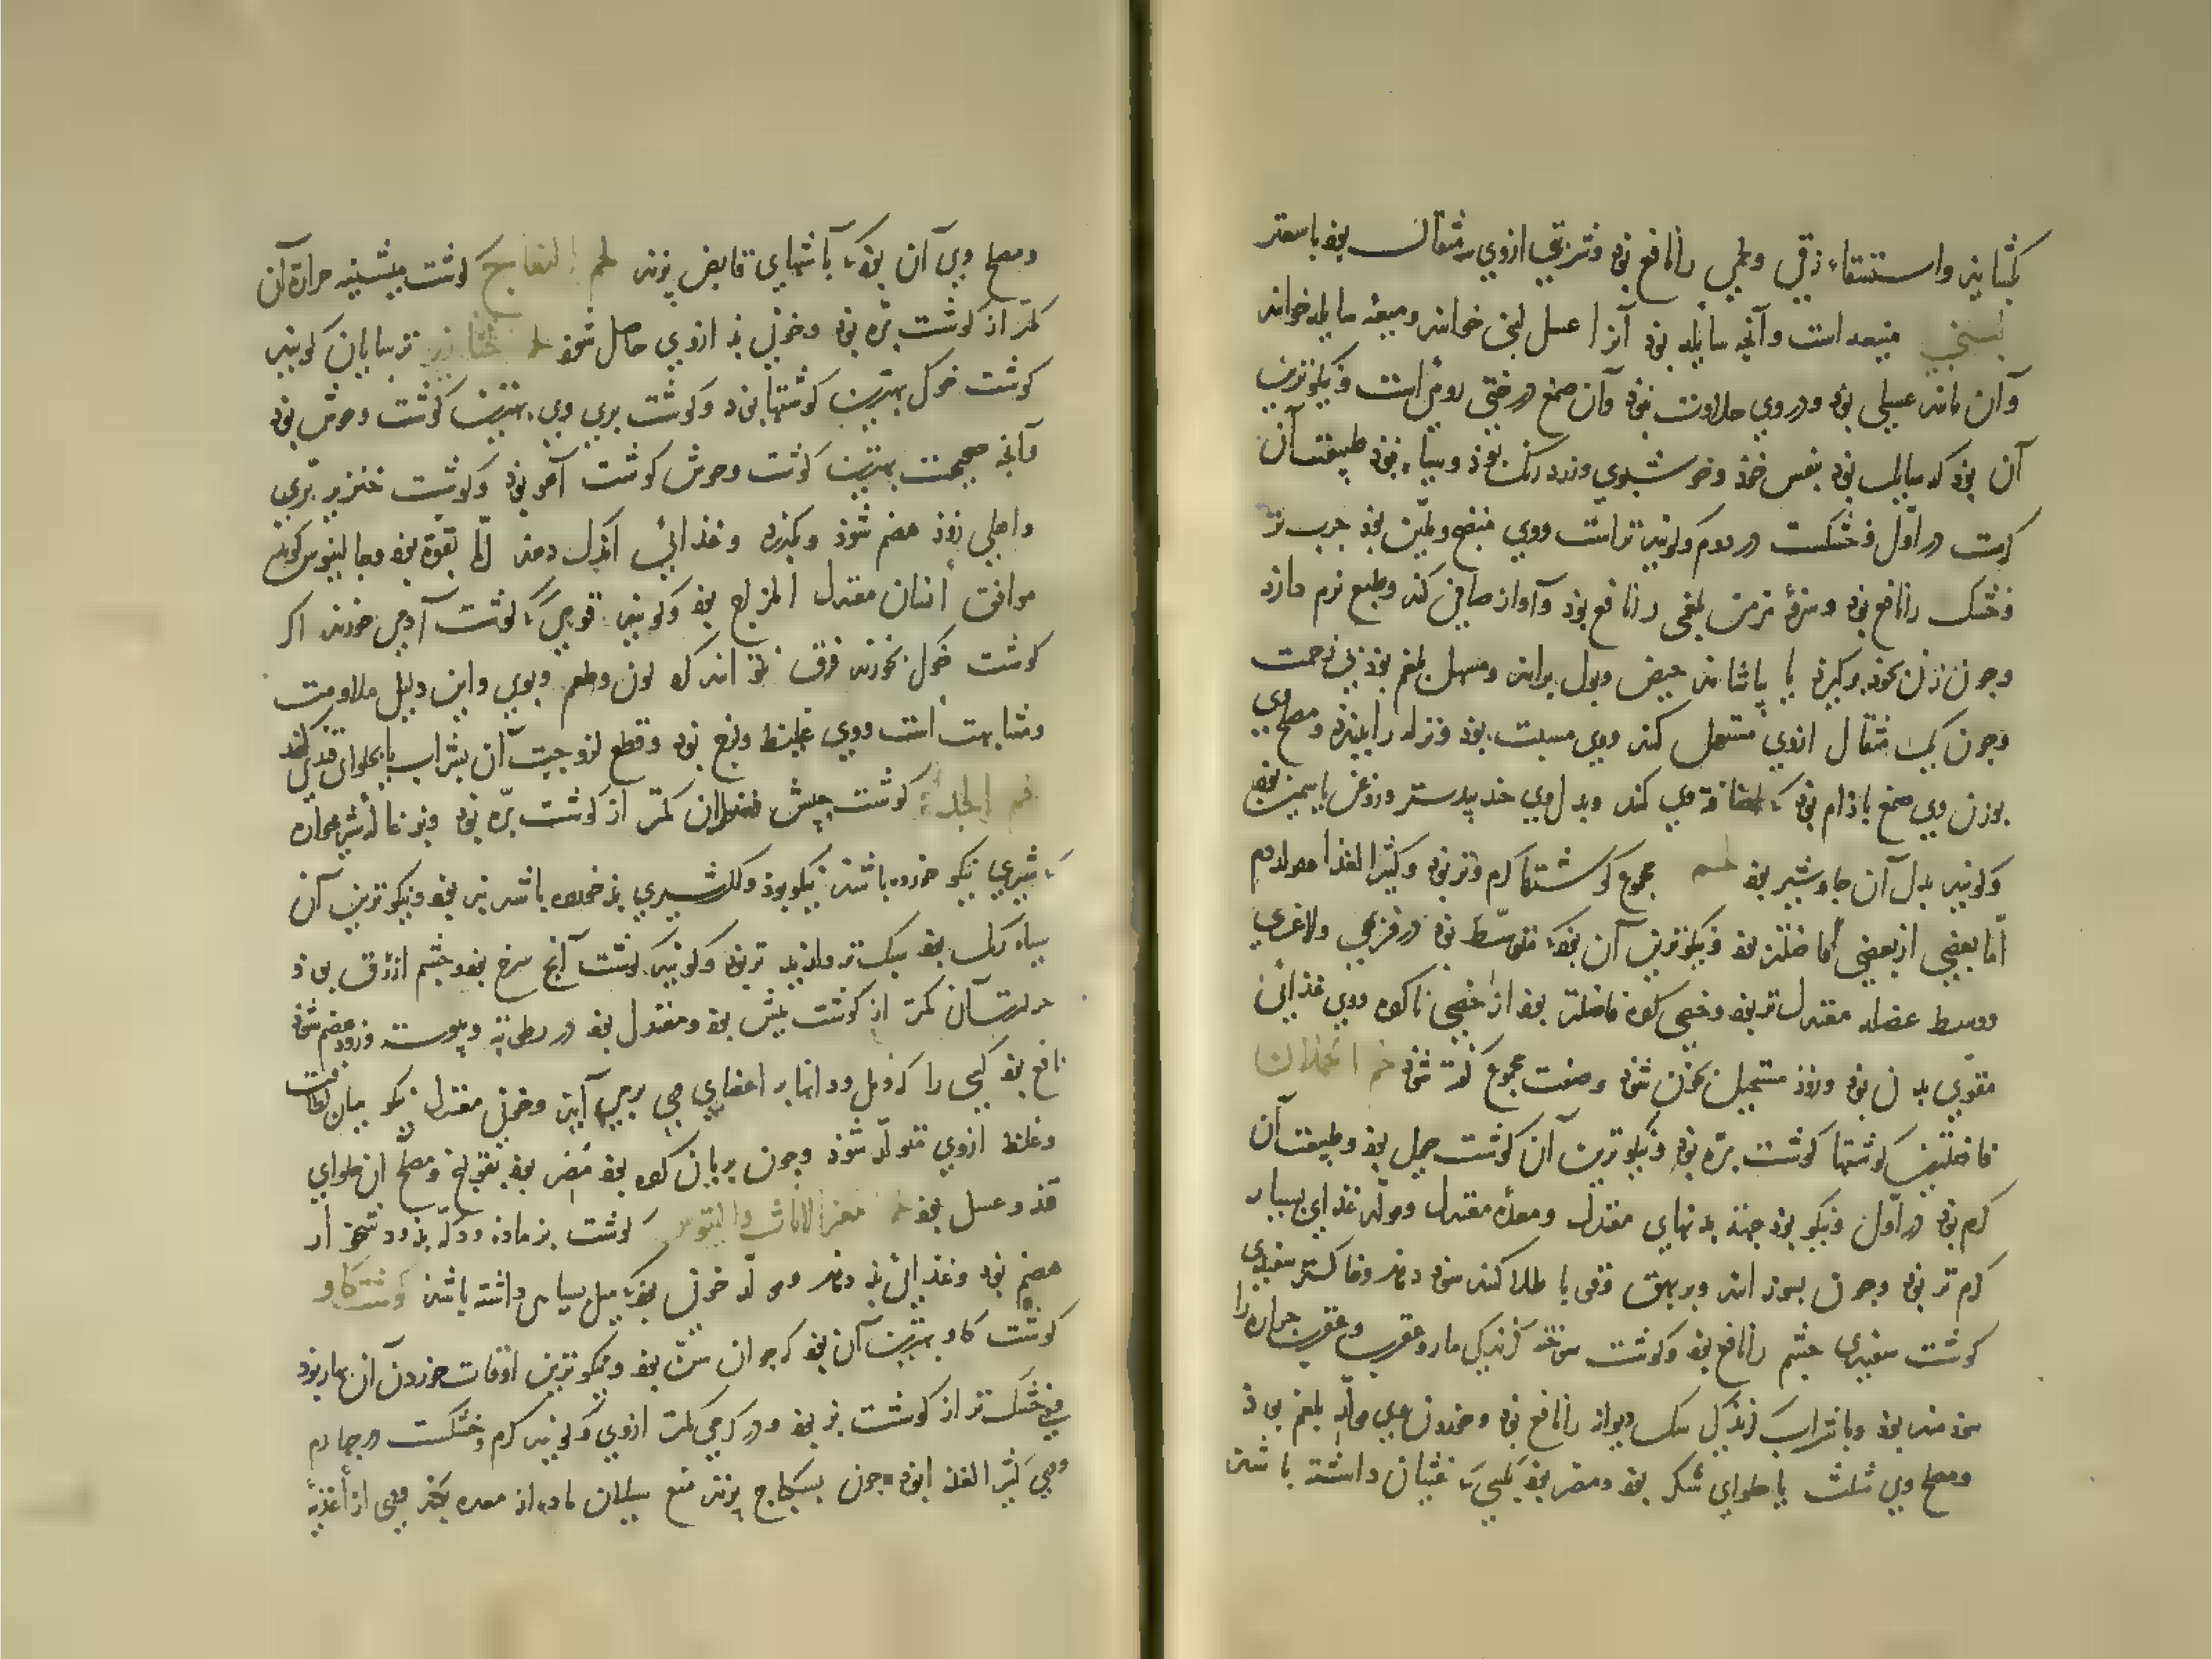 بکشاید واستسقاء زقی ولحمی را نافع بود وشربتی ازوی سه مثقال بود باسعتر
لبنی میعه است وآنچه سایله بود آنرا عسل لبنی خوانند ومیعه سایله خوانند
وآن مانند عسلی بود ودروی حلاوت نبود وآن صمغ درختی رومی است ونیکوترین
آن بود که سایل بود بنفس خود وخوشبوی وزرد رنک بود وسیاه نبود طبیعت آن
کرمست در اول وخشکست در دوم وکویند تراست ووی منضج وملین بود جرب تر
وخشک را نافع بود وسرفه مزمن بلغمی را نافع بود وآواز صافی کند وطبع نرم دارد
وجون زن بخود برکیرد یا بیاشامد حیض وبول براند ومسهل بلغم بود بی زحمت
وجون یک مثقال ازوی مستعمل کنند ووی مسبت بود ونزله را ببندد ومصلح وی
بوزن وی صمغ بادام بود که اضافه وی کنند وبدل وی جند بیدستر وروغن یاسمین بود
وکویند بدل آن جاوشیر بود لحم مجموع کوشتها کرم وتر بود وکثیر الغذا مولد دم
اما بعضی از بعضی فاضلتر بود ونیکوترین آن بود که متوسط بود در فربهی ولاغری
ووسط عضله معتدلتر بود وخصی کرده فاضلتر بود از خصی ناکرده ووی غذائی
مقوی بدن بود وزود مستحیل بخون شود وصفت مجموع کفته شود لحم الحملان
فاضلترین کوشتها کوشت بره بود ونیکوترین آن کوشت حمل بود وطبیعت آن
کرم بود در اول ونیکو بود جهت بدنهای معتدل ومعده معتدل ومولد غذای بسیار
کرم تر بود وجون بسوزانند وبر بهق وقوبا طلا کنند سود دهد وخاکستر سفیدی
کوشت سفیدی چشم را نافع بود وکوشت سوخته کزندکی مار وعقرب وعقرب جراره را
سودمند بود وبا شراب کزندکی سک دیوانه را نافع بود وخوردن وی مولد بلغم بود
ومصلح وی مثلث یا حلوای شکر بود ومضر بود بکسی که غثیان داشته باشد
ومصلح وی آن بود که با آشهای قابض پزند لحم النعاج کوشت میشینه حرارة آن
کمتر از کوشت بره بود وخونی بد ازوی حاصل شود لحم خنازیر ترسایان کویند
کوشت خوک بهترین کوشتها بود وکوشت بری وی بهترین کوشت وحوش بود
وآنچه صحیحست بهترین کوشت وحوش کوشت آهو بود وکوشت خنزیر بری
واهلی زود هضم شود وبکذرد وغذائی اندک دهد اما بقوة بود وجالینوس کوید
موافق انسان معتدل المزاج بود وکویند قومی که کوشت آدمی خورند اکر
کوشت خوک بخورند فرق نتوانند کرد لون وطعم وبوی واین دلیل ملاومت
ومشابهت است ووی غلیظ ولزج بود وقطع لزوجیت آن بشراب یا بحلوای قندی کنند
لحم الجدا کوشت بیش فضلان کمتر از کوشت بره بود وبزغاله شیرخواره
که شیری نیکو خورده باشد نیکو بود ولکن شیری بد خورده باشد بد بود ونیکوترین آن
سیاه رنک بود سبک تر ولذیذتر بود وکویند کوشت آنچ سرخ بود وچشم ازرق بود
حرارت آن کمتر از کوشت میش بود ومعتدل بود در رطوبة ویبوست وزود هضم شود
نافع بود کسی را که دمل ودانها بر اعضای وی برمی آید وخونی معتدل نیکو میان لطافت
وغلظ ازوی متولد شود وجون بریان کرده بود مضر بود بقولنج ومصلح آن حلوای
قند وعسل بود لحم معز الاناث والتیوس کوشت بز ماده ودکه بد ود شخوار
هضم بود وغذائی بد دهد ومولد خونی بود که میل بسیاهی داشته باشد کوشت کاو
کوشت کاو بهترین آن بود که جوان سن بود ونیکوترین اوقات خوردن آن بهار بود
وخشک تر از کوشت بز بود ودر کرمی کمتر ازوی وکویند کرم وخشکست در چهارم
ووی کثیر الغذا بود جون بسکباج پزند منع سیلان ماده از معده بکند ووی از اغذیه